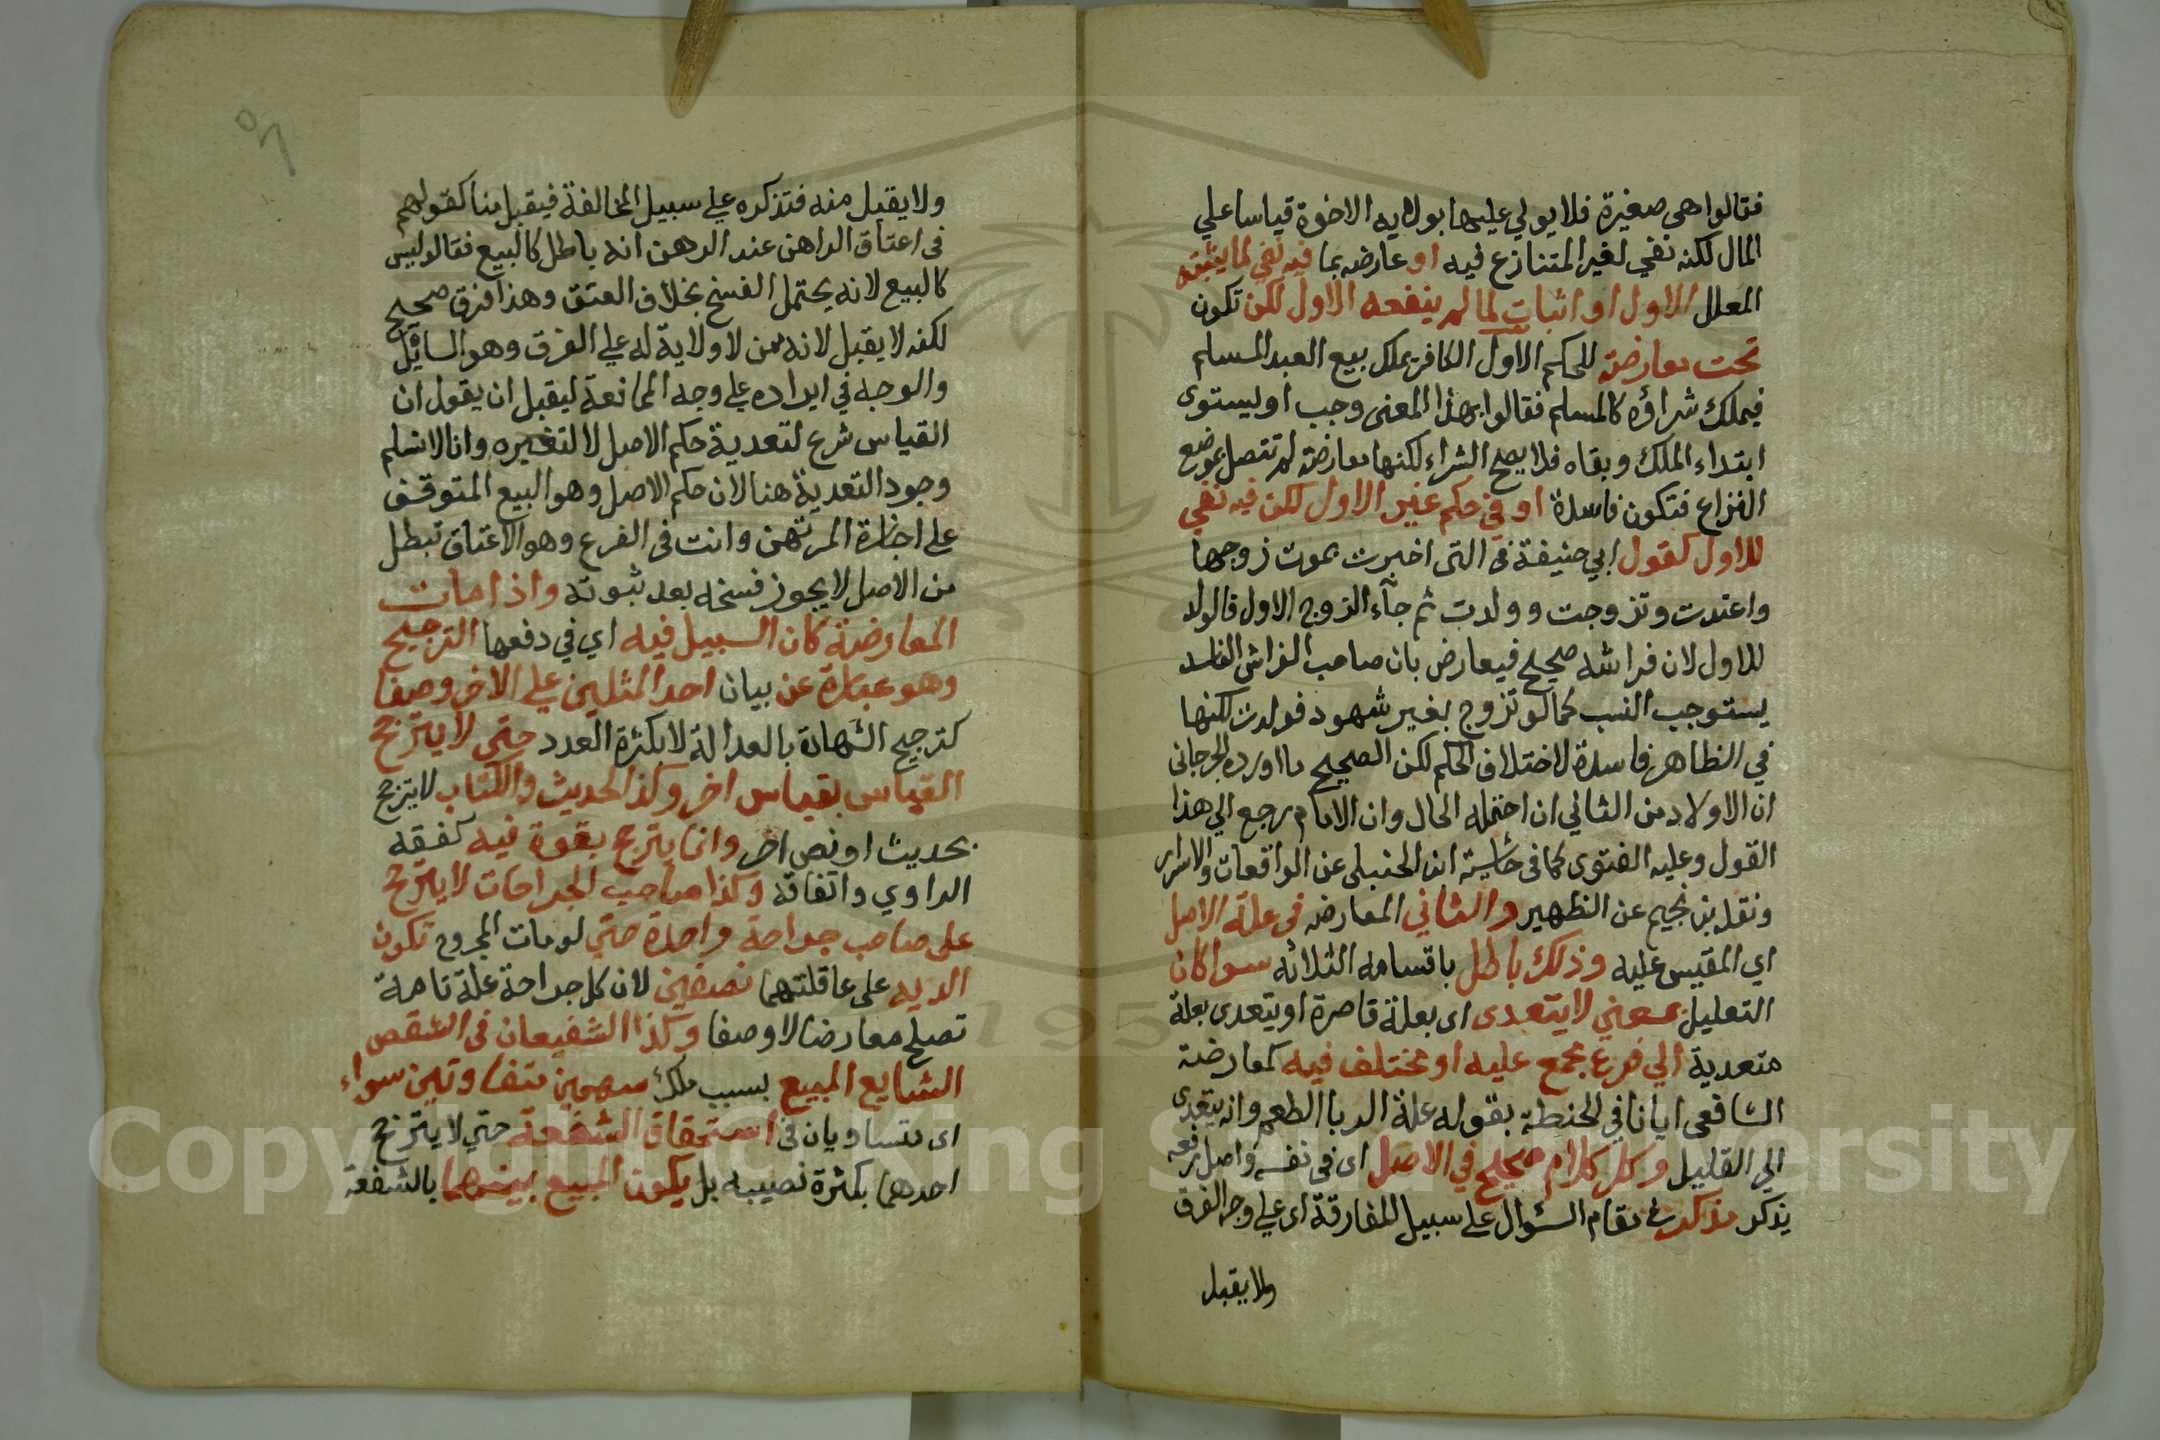 فقالوا هي صغيرة فلا يولي عليها بولايه الاخوة قياسا علي
المال لكنه نفي لغير المتنازع فيه او عارضه بما فيه نفي لما يثبته
المعلل الاول او اثبات لما لم ينفعه الاول لكن تكون
تحت معارضته للحكم الاول الكافر يملك بيع العبد المسلم
فيملك شراؤه كالمسلم فقالوا بهذا المعنى وجب اويستوى
ابتداء الملك وبقاه فلا يصح الشراء لكنها معارضة لم تتصل بموضع
النزاع فتكون فاسدة او في حكم غير الاول لكن فيه نفي
للاول كقول ابي حنيفة في التى اخبرت بموت زوجها
واعتدت وتزوجت وولدت ثم جآء الزوج الاول فالولد
للاول لان فراشه صحيح فيعارض بان صاحب الفراش الفاسد
يستوجب النسب كما لو تزوج بغير شهود فولدت لكنها
في الظاهر فاسدة لاختلاف الحكم لكن الصحيح ما اورده الجرجانى
ان الاولاد من الثاني ان احتمله الحال وان الامام رجع الي هذا
القول وعليه الفتوى كما فى حاشية ابن الحنبلى عن الواقعات والاسرار
ونقله بن نجيم عن الظهير والثاني المعارضه فى علة الاصل
اي المقيس عليه وذلك باطل باقسامه الثلاثه سوا كان
التعليل بمعني لا يتعدى اى بعلة قاصرة او يتعدى بعلة
متعدية الي فرع مجمع عليه او مختلف فيه كمعارضة
الشافعى ايانا في الحنطة بقوله علة الربا الطعم وانه يتعدى
الي القليل وكل كلام صحيح في الاصل اى فى نفسه واصل وضعه
يذكر يذكر في مقام السئوال علي سبيل المفارقة اى علي وجه الفرق
ولا يقبل
ولا يقبل منه فتذكره علي سبيل المخالفة فيقبل منا كقولهم
فى اعتاق الراهن عند الرهن انه باطل كالبيع فقالوا ليس
كالبيع لانه يحتمل الفسخ بخلاف العتق وهذا فرق صحيح
لكنه لا يقبل لانه ممن لا ولاية له علي الفرق وهو السائل
والوجه في ايراده علي وجه الممانعة ليقبل ان يقول ان
القياس شرع لتعدية حكم الاصل لا لتغييره وانا لا نسلم
وجود التعدية هنا لان حكم الاصل وهو البيع المتوقف
علي اجازة المرتهن وانت فى الفرع وهو الاعتاق تبطل
من الاصل لا يجوز فسخه بعد ثبوته واذا قامت
المعارضة كان السبيل فيه اي في دفعها الترجيح
وهو عبارة عن بيان احد المثلين علي الاخر وصفا
كترجيح الشهادة بالعدالة لا بكثرة العدد حتي لا يترجح
القياس بقياس اخر وكذا الحديث والكتاب لا يترجح
بحديث او نص اخر وانما يترجح بقوة فيه كفقه
الراوي واتقانه وكذا صاحب الجراحات لا يترجح
على صاحب جراحة واحدة حتي لو مات المجروح تكون
الديه على عاقلتهما نصفين لان كل جراحة علة تامة
تصلح معارضا لا وصفا وكذا الشفيعان فى الشقص
الشايع المبيع بسبب ملك سهمين متفاوتين سواء
اى متساويان فى استحقاق الشفعة حتي لا يترجح
احدهما بكثرة نصيبه بل يكون المبيع بينهما بالشفعة